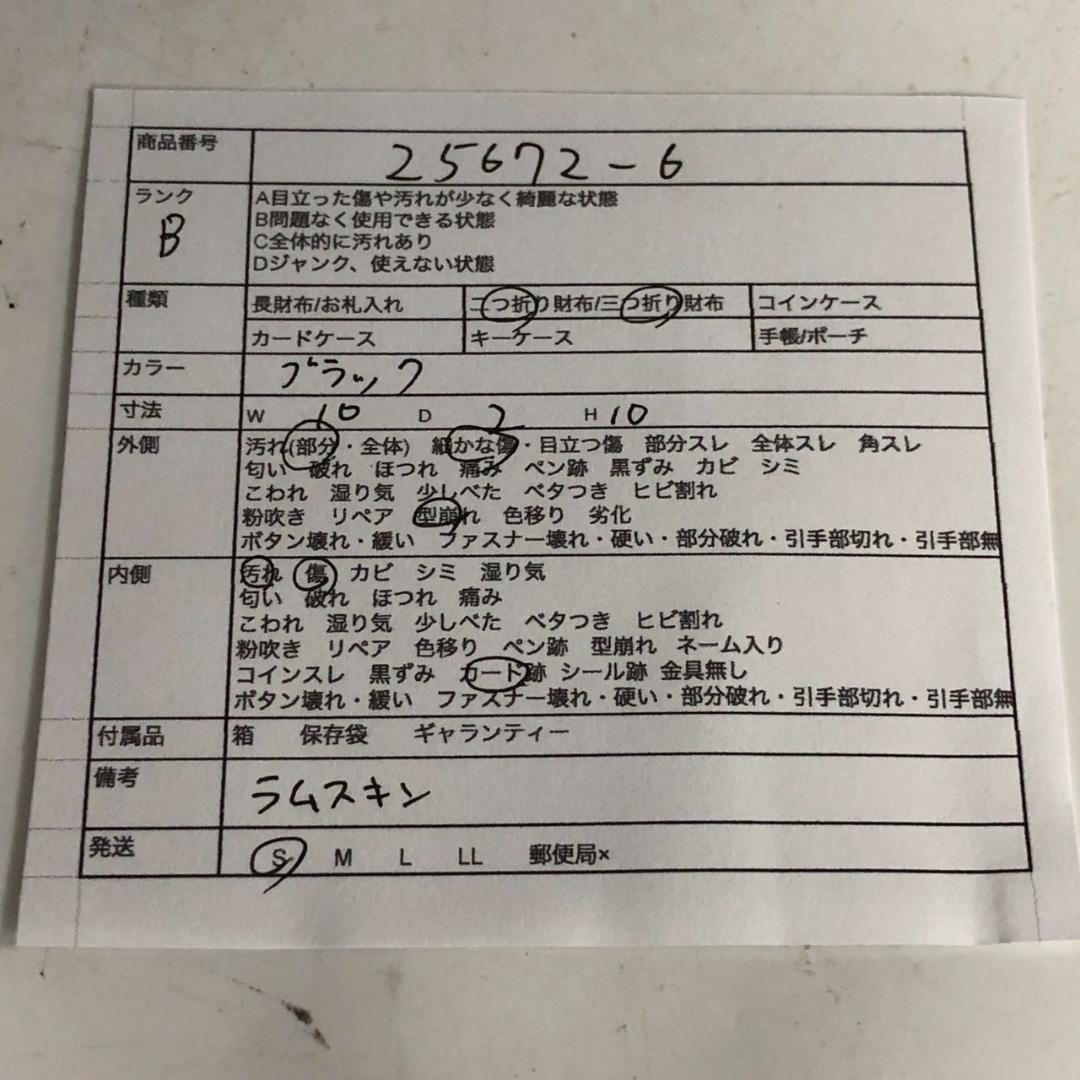 商品番号 25672-6
ランク B
A目立った傷や汚れが少なく綺麗な状態
B問題なく使用できる状態
C全体的に汚れあり
Dジャンク、使えない状態
種類 長財布/お札入れ 二つ折り財布/三つ折り財布 コインケース
カードケース キーケース 手帳/ポーチ
カラー ブラック
寸法 W 10 D 2 H 10
外側 汚れ(部分・全体) 細かな傷・目立つ傷 部分スレ 全体スレ 角スレ
匂い 破れ ほつれ 痛み ペン跡 黒ずみ カビ シミ
こわれ 湿り気 少しべた ベタつき ヒビ割れ
粉吹き リペア 型崩れ 色移り 劣化
ボタン壊れ・緩い ファスナー壊れ・硬い・部分破れ・引手部切れ・引手部無
内側 汚れ 傷 カビ シミ 湿り気
匂い 破れ ほつれ 痛み
こわれ 湿り気 少しべた ベタつき ヒビ割れ
粉吹き リペア 色移り ペン跡 型崩れ ネーム入り
コインスレ 黒ずみ カード跡 シール跡 金具無し
ボタン壊れ・緩い ファスナー壊れ・硬い・部分破れ・引手部切れ・引手部無
付属品 箱 保存袋 ギャランティー
備考 ラムスキン
発送 S M L LL 郵便局×